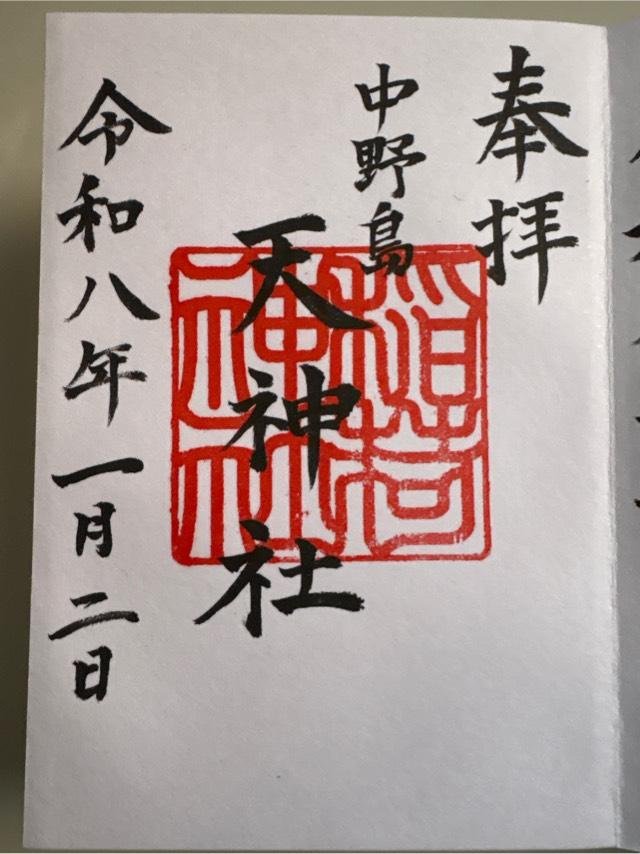 奉拝
中野島
天神社
稲荷
神社
令和八年一月二日